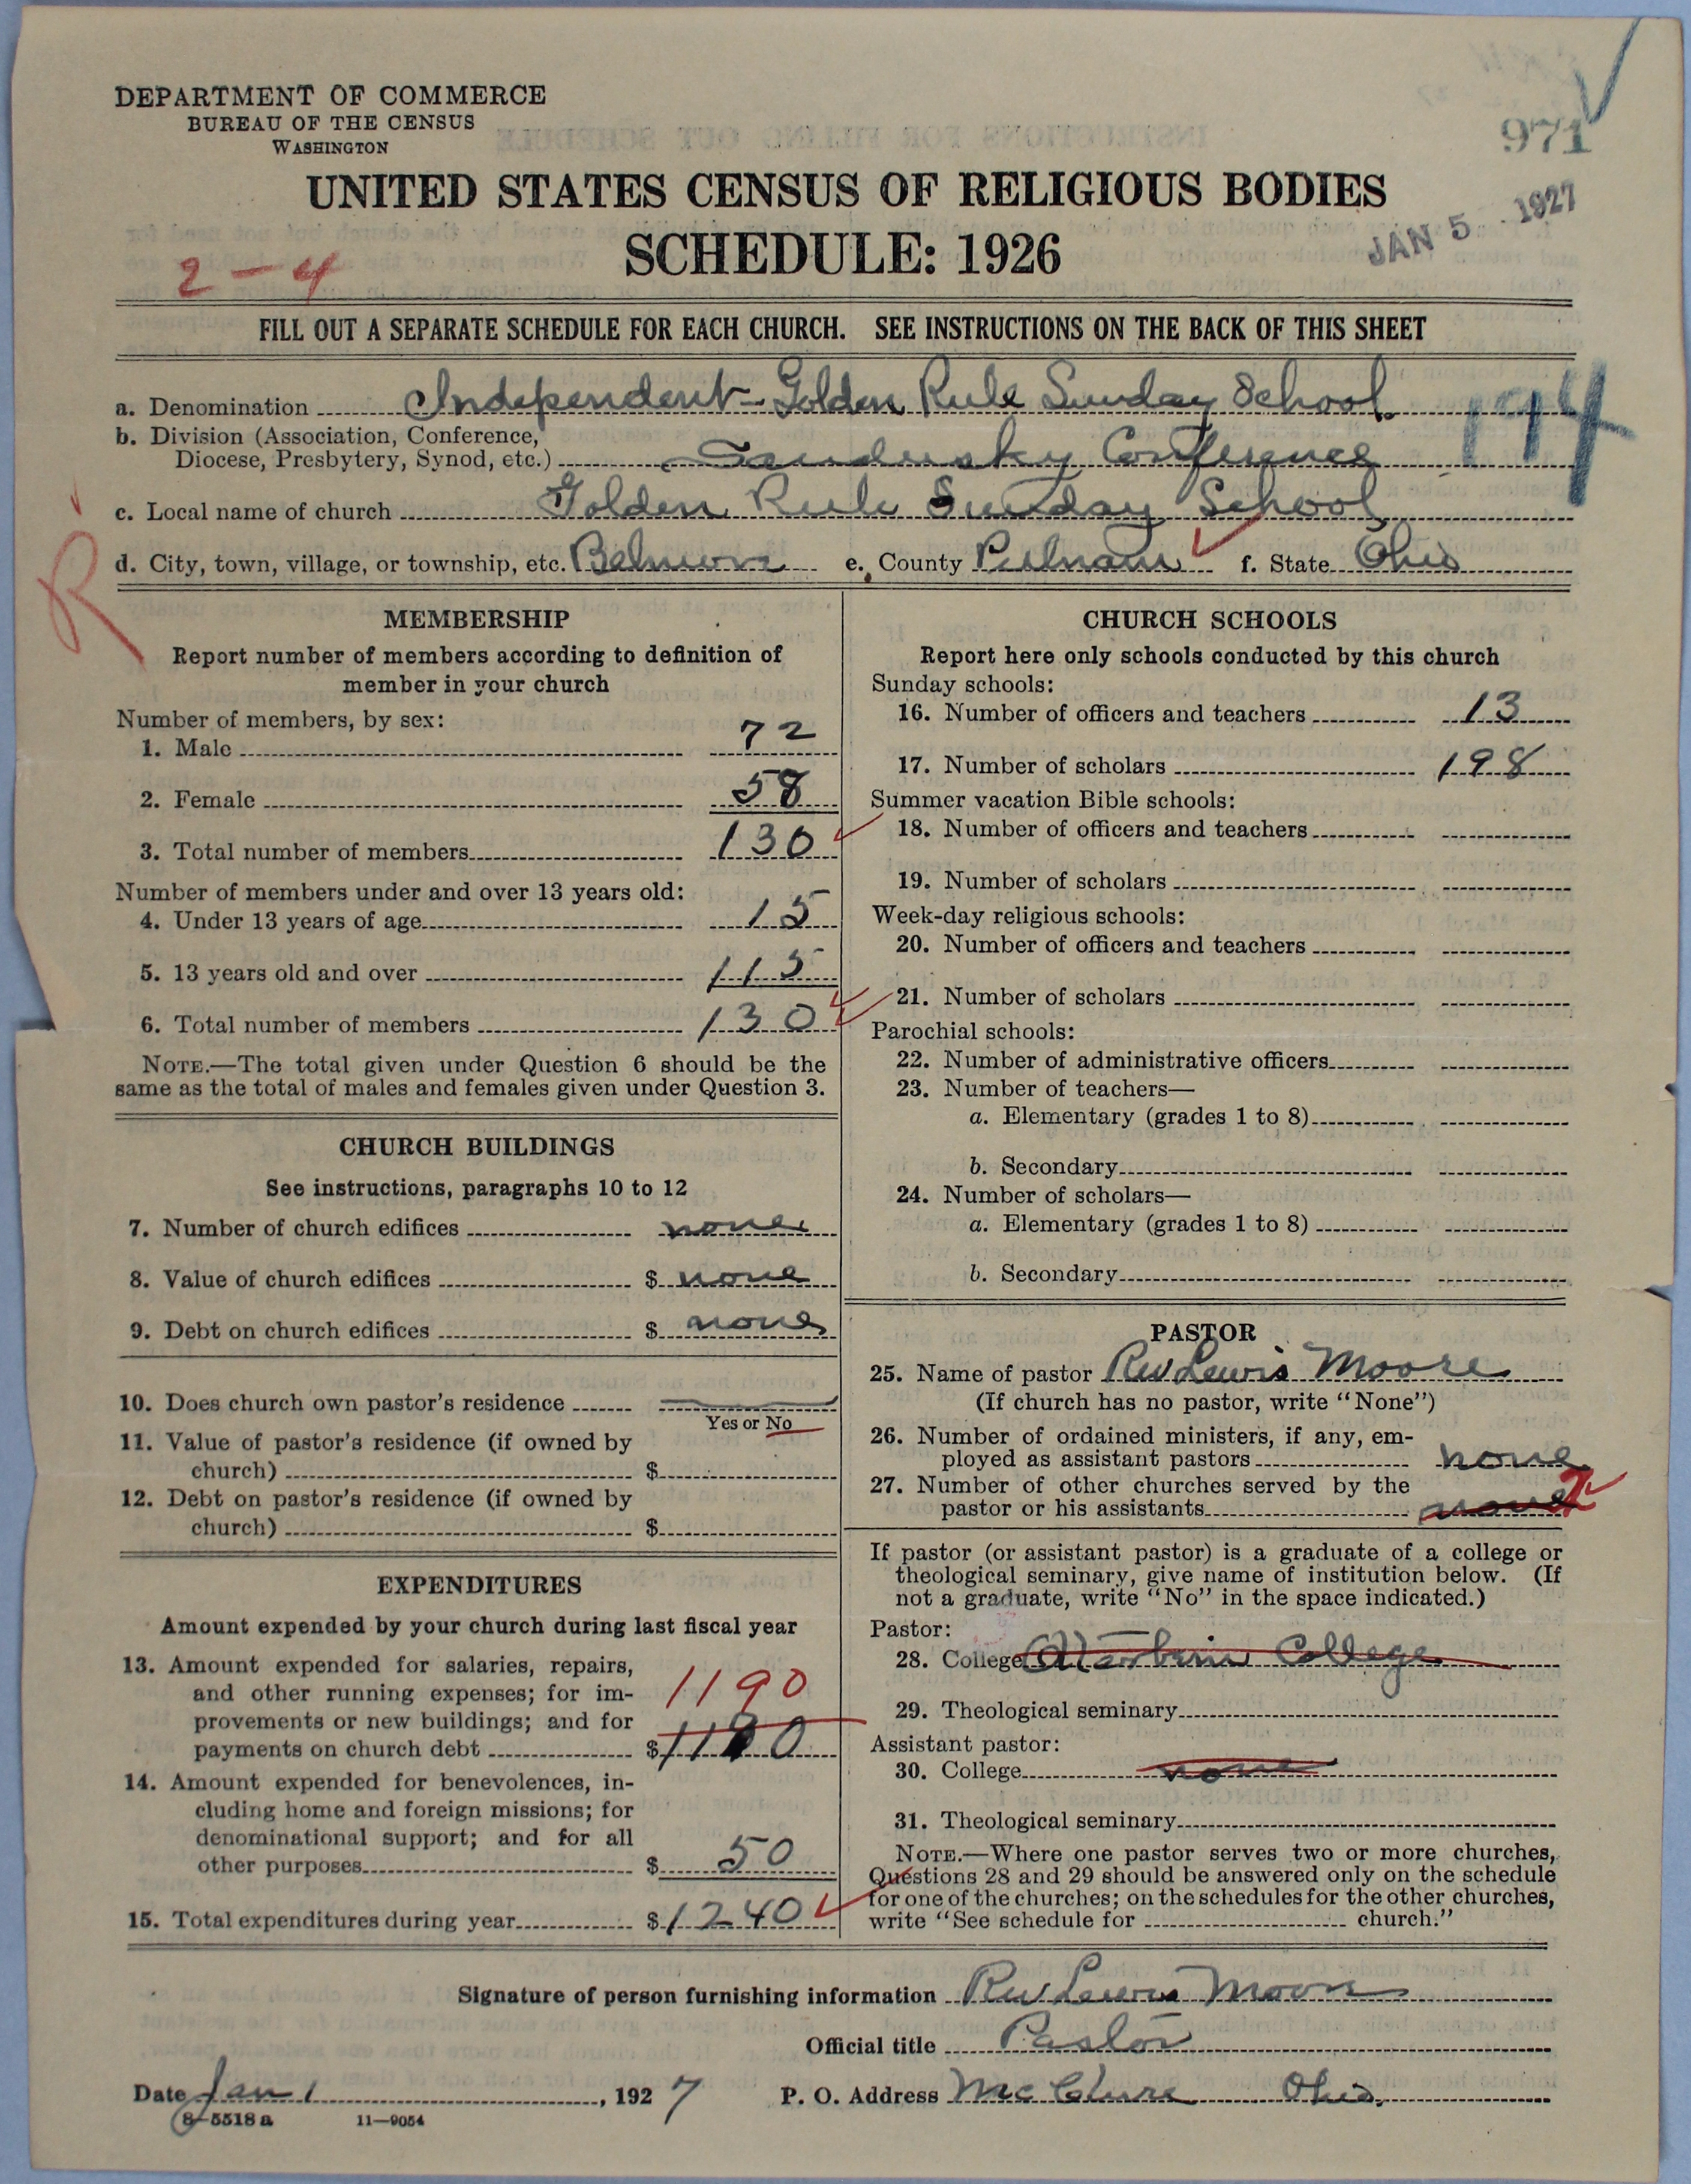 DEPARTMENT OF COMMERCE
BUREAU OF THE CENSUS
WASHINGTON
971
UNITED STATES CENSUS OF RELIGIOUS BODIES
SCHEDULE: 1926
JAN 5 1927
2-4
FILL OUT A SEPARATE SCHEDULE FOR EACH CHURCH. SEE INSTRUCTIONS ON THE BACK OF THIS SHEET
a. Denomination Independent-Golden Rule Sunday School
194
b. Division (Association, Conference,
Diocese, Presbytery, Synod, etc.) Sandusky Conference
c. Local name of church Golden Rule Sunday School
R
d. City, town, village, or township, etc. Belmore e. County Putnam f. State Ohio
MEMBERSHIP
Report number of members according to definition of
member in your church
Number of members, by sex:
1. Male 72
2. Female 58
3. Total number of members 130
Number of members under and over 13 years old:
4. Under 13 years of age 15
5. 13 years old and over 115
6. Total number of members 130
NOTE.—The total given under Question 6 should be the
same as the total of males and females given under Question 3.
CHURCH BUILDINGS
See instructions, paragraphs 10 to 12
7. Number of church edifices none
8. Value of church edifices $ none
9. Debt on church edifices $ none
10. Does church own pastor's residence
Yes or No
11. Value of pastor's residence (if owned by
church) $
12. Debt on pastor's residence (if owned by
church) $
EXPENDITURES
Amount expended by your church during last fiscal year
13. Amount expended for salaries, repairs,
and other running expenses; for im-
1190
provements or new buildings; and for
payments on church debt $ 1190
14. Amount expended for benevolences, in-
cluding home and foreign missions; for
denominational support; and for all
other purposes $ 50
15. Total expenditures during year $ 1240
CHURCH SCHOOLS
Report here only schools conducted by this church
Sunday schools:
16. Number of officers and teachers 13
17. Number of scholars 198
Summer vacation Bible schools:
18. Number of officers and teachers
19. Number of scholars
Week-day religious schools:
20. Number of officers and teachers
21. Number of scholars
Parochial schools:
22. Number of administrative officers
23. Number of teachers—
a. Elementary (grades 1 to 8)
b. Secondary
24. Number of scholars—
a. Elementary (grades 1 to 8)
b. Secondary
PASTOR
25. Name of pastor Rev Lewis Moore
(If church has no pastor, write "None")
26. Number of ordained ministers, if any, em-
ployed as assistant pastors none
27. Number of other churches served by the
pastor or his assistants none 2
If pastor (or assistant pastor) is a graduate of a college or
theological seminary, give name of institution below. (If
not a graduate, write "No" in the space indicated.)
Pastor:
28. College Otterbein College
29. Theological seminary
Assistant pastor:
30. College none
31. Theological seminary
NOTE.—Where one pastor serves two or more churches,
Questions 28 and 29 should be answered only on the schedule
for one of the churches; on the schedules for the other churches,
write "See schedule for church."
Signature of person furnishing information Rev Lewis Moore
Official title Pastor
Date Jan 1, 1927 P. O. Address McClure Ohio.
8-5518 a 11-9054